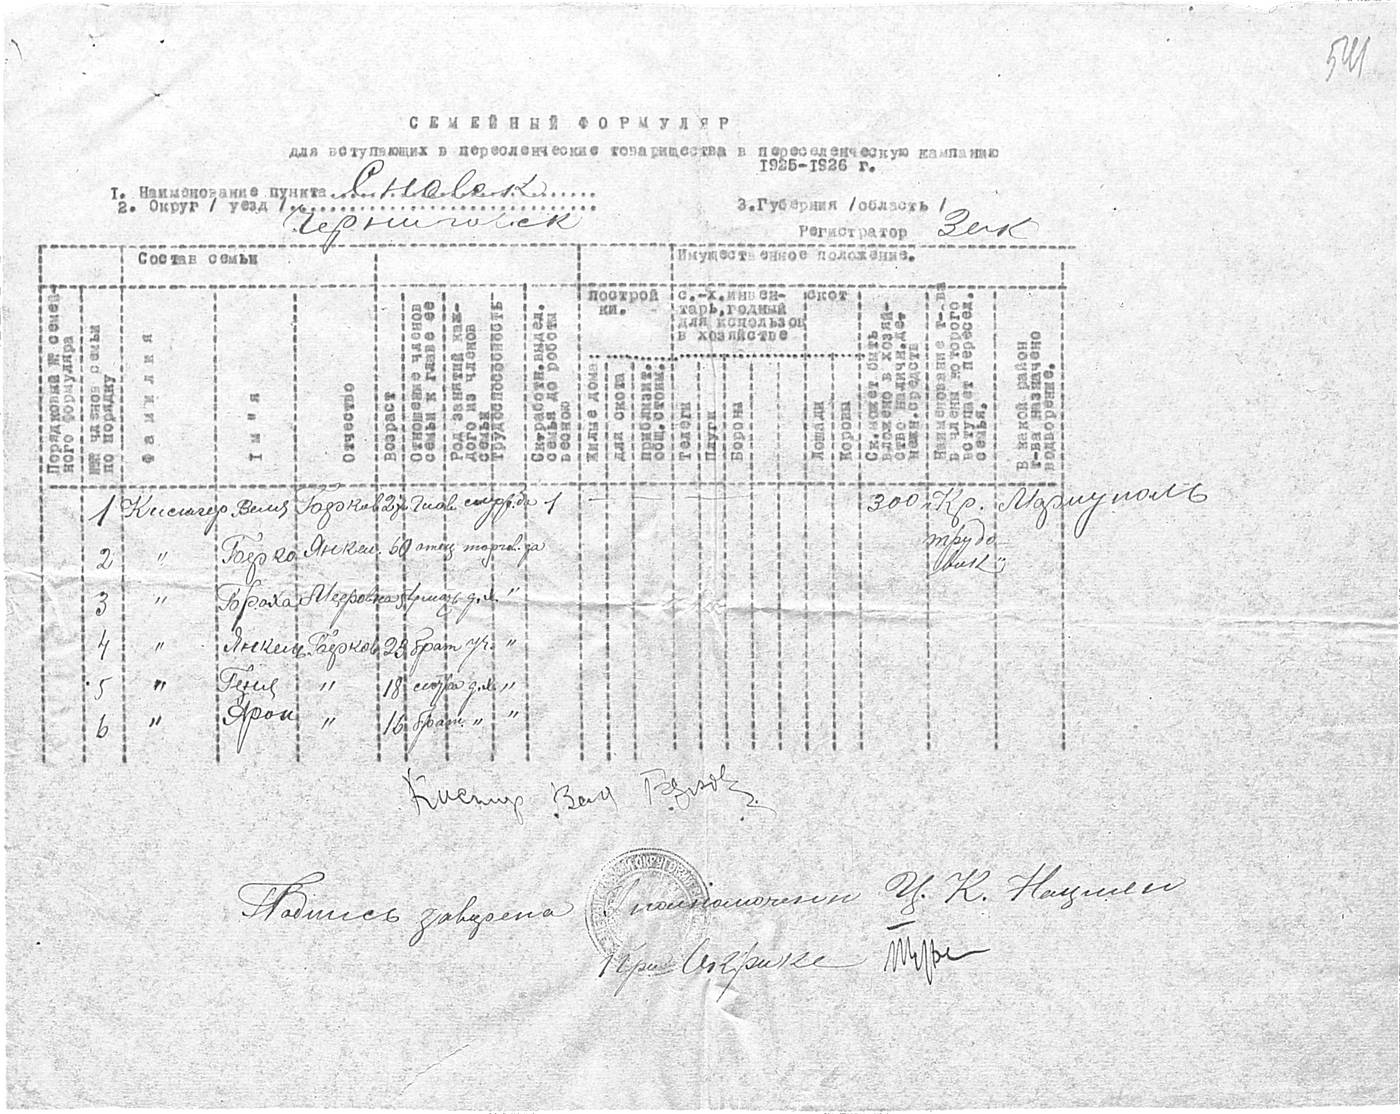 541
СЕМЕЙНЫЙ ФОРМУЛЯР
для вступающих в пересленческие товарищества в переселенческую кампанию
1925-1926 г.
1. Наименование пункта Сновск
2. Округ / уезд / Черниговск
3. Губерния /область /
Регистратор Зак
Состав семьи
Имущественное положение.
Порядковый № семейного формуляра
№№ членов семьи по порядку
Фамилия
Имя
Отчество
Возраст
Отношение членов семьи к главе ее
Род занятий каждого из членов семьи
Трудоспособность
Ск.работн.выдел. семья до работы весною
постройки.
Жилые дома
для скота
приблизит. общ.стоим.
с.-х.инвентарь,годный для использов в хозяйстве
Телеги
Плуги
Борона
скот
Лошади
Коровы
Ск.может быть вложено в хозяйство налич.ден. средств
Наименование т-ва в члены которого вступает пересел. семья.
В какой район т-ва назначено водворение.
1 Кистер Веля Берков 27 Глав. да 1 — — — 300 „Кр. Мариуполь
трудовик"
2 " Берко Янкел. 60 отец торгов. да
3 " Броха Мееровна мать д.х. "
4 " Янкель Берков 23 брат уч. "
5 " Геня " 18 сестра д.х. "
6 " Арон " 16 брат " "
Кистер Веля Берков
Подпись заверена Уполномоченн Ц. К. Нацмен
при Окрике